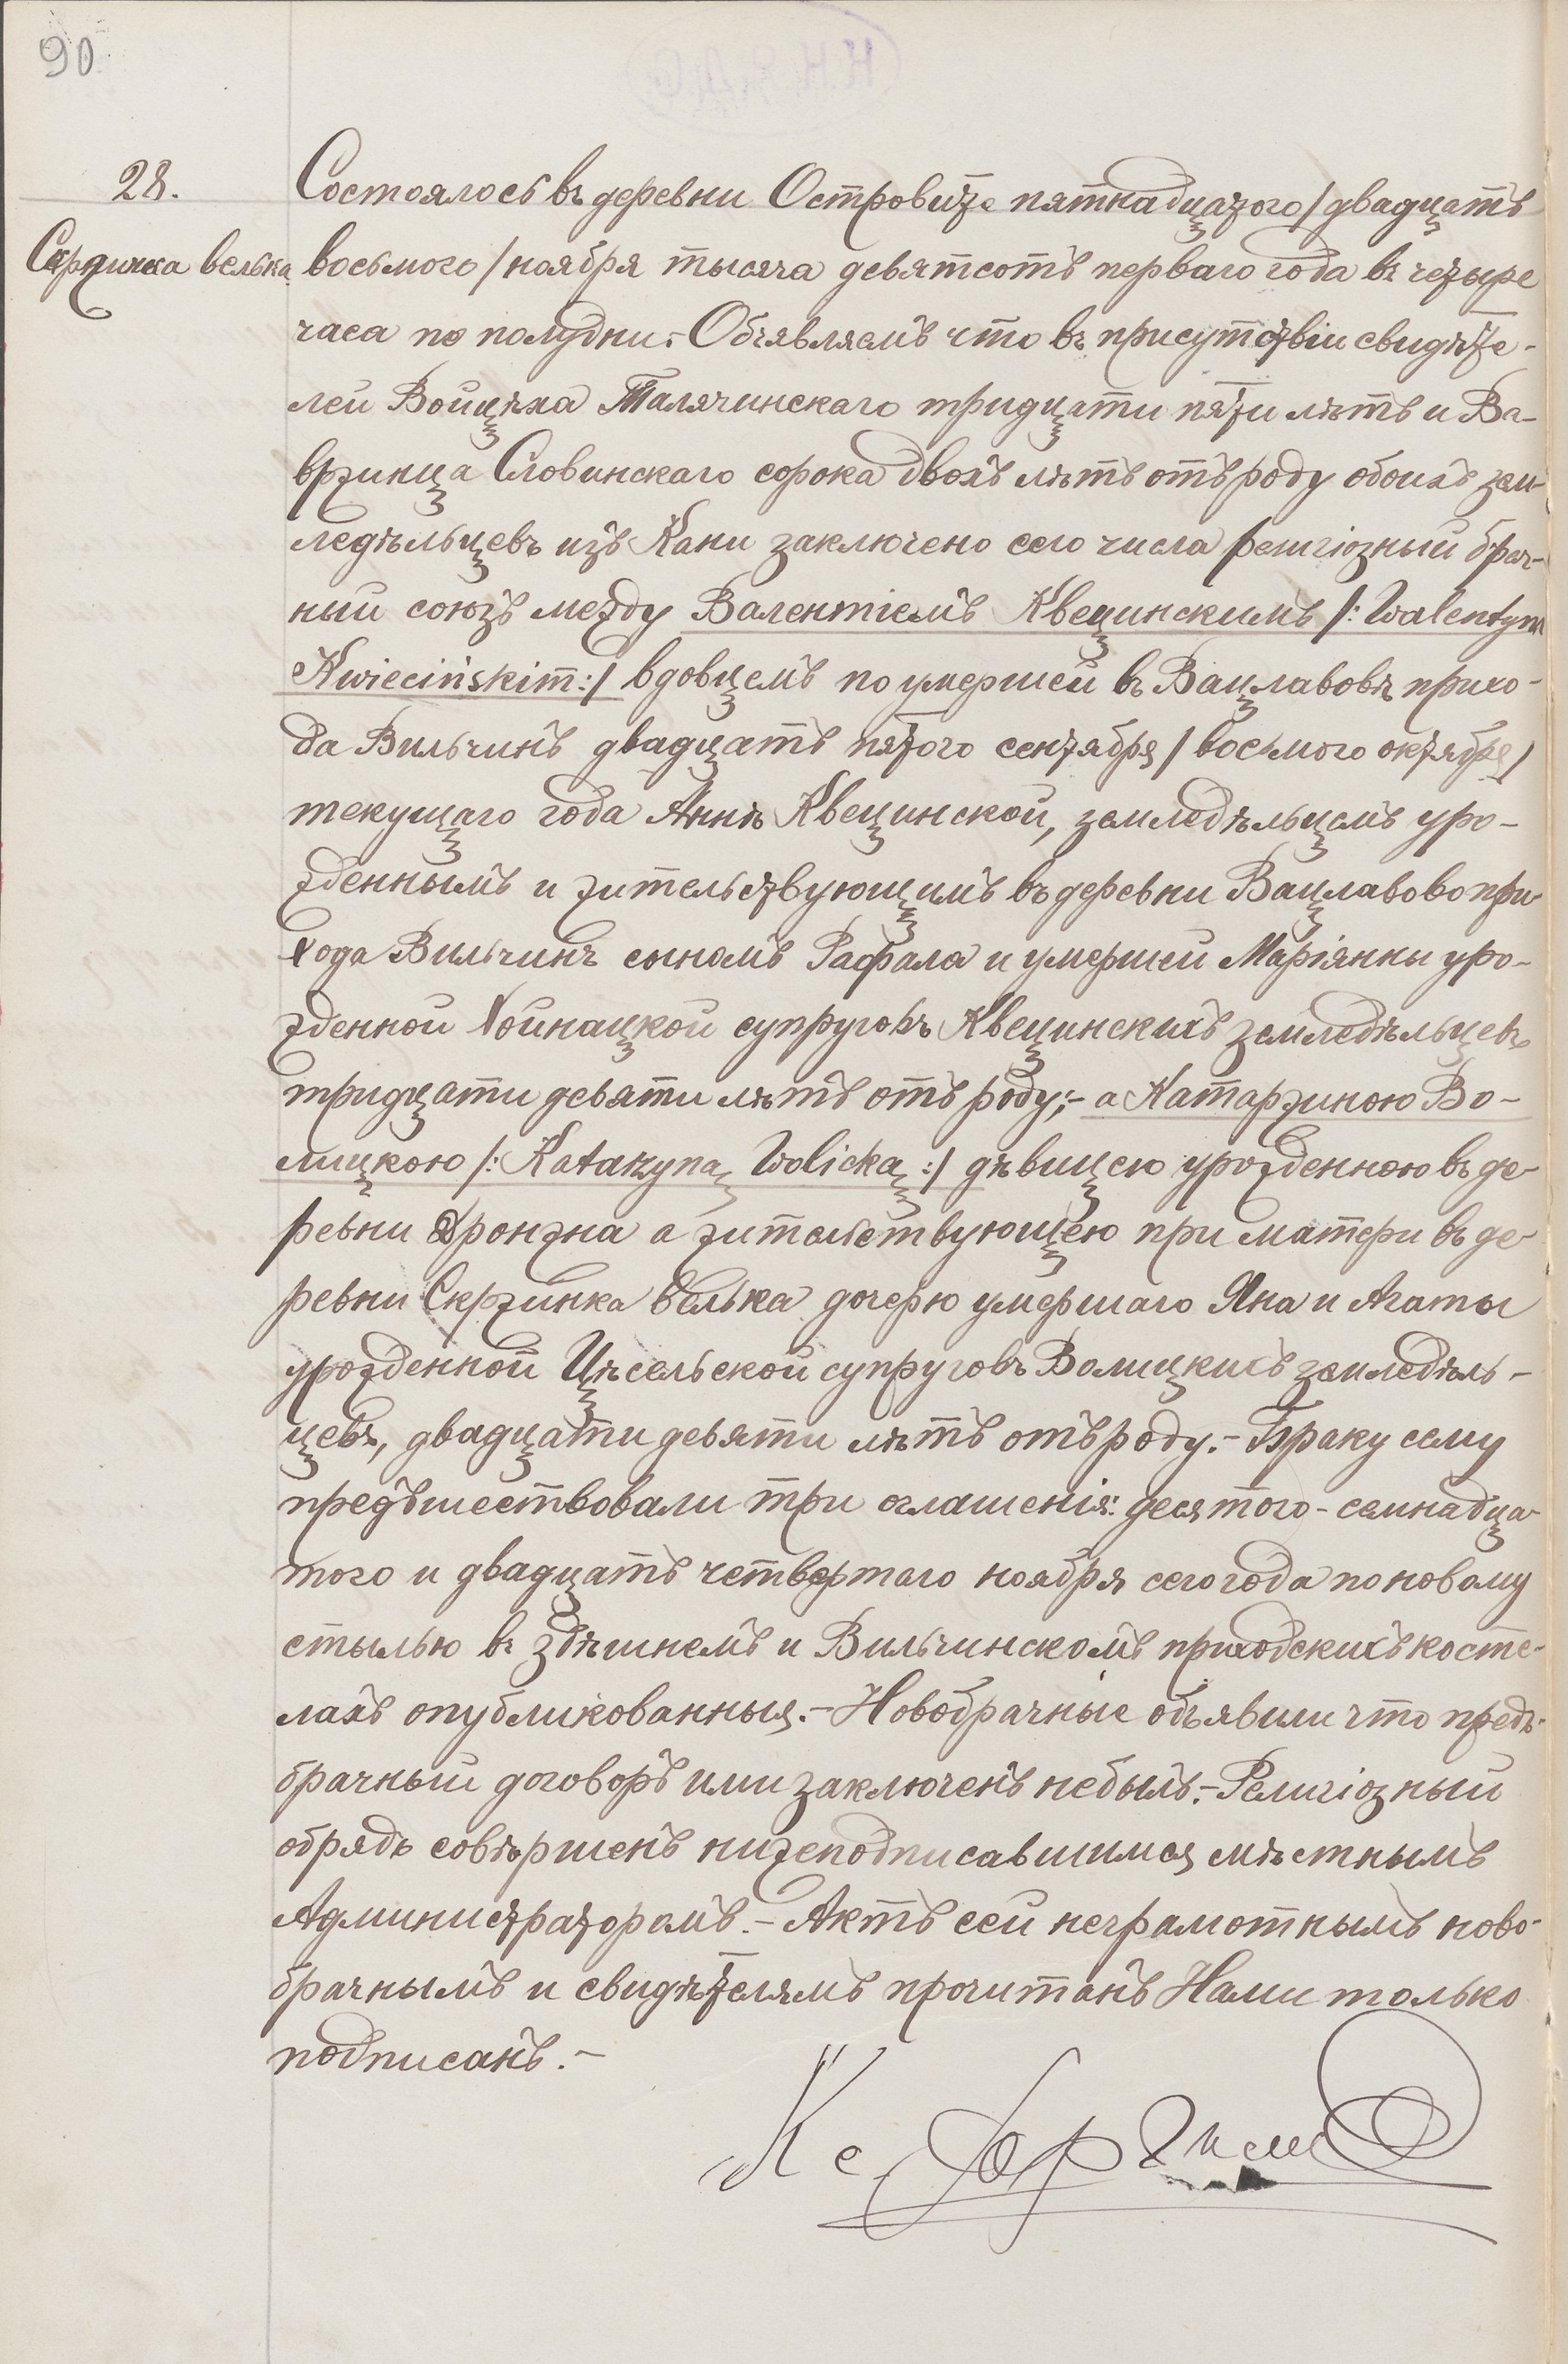 90
28.
Скржинка велька
Состоялось въ деревни Островите пятнадцатого / двадцать
восьмого / ноября тысяча девятсотъ перваго года въ четыре
часа по полудни. – Объявляемъ что въ присутствіи свидѣте-
лей Войцѣха Талячинскаго тридцати пяти лѣтъ и Ва-
вржинца Словинскаго сорока двохъ лѣтъ отъ роду обоихъ зем-
ледѣльцевъ изъ Кани заключено сего числа религіозный брач-
ный союзъ между Валентіемъ Квецинскимъ /: Walentym
Kwiecińskim :/ вдовцемъ по умершей въ Вацлавовѣ прихо-
да Вильчинъ двадцать пятого сентября / восьмого октября /
текущаго года Аннѣ Квецинской, земледѣльцемъ уро-
жденнымъ и жительствующимъ въ деревни Вацлавово при-
хода Вильчинъ сыномъ Рафала и умершей Маріянны уро-
жденной Хойнацкой супруговъ Квецинскихъ земледѣльцевъ
тридцати девяти лѣтъ отъ роду; – а Катаржиною Во-
лицкою /: Katarzyną Wolicką :/ дѣвицею урожденною въ де-
ревни Дронжна а жительствующею при матери въ де-
ревни Скржинка велька дочерю умершаго Яна и Агаты
урожденной Цѣсельской супруговъ Волицкихъ земледѣль-
цевъ, двадцати девяти лѣтъ отъ роду. – Браку сему
предъшествовали три оглашенія: десятого – семнадца-
того и двадцать четвертаго ноября сего года по новому
стылью въ здѣшнемъ и Вильчинскомъ приходскихъ косте-
лахъ опубликованныя. – Новобрачные объявили что предъ-
брачный договоръ ими заключенъ небылъ. – Религіозный
обрядъ совѣршенъ нижеподписавшимся мѣстнымъ
Администраторомъ. – Актъ сей неграмотнымъ ново-
брачнымъ и свидѣтелямъ прочитанъ Нами только
подписанъ. –
Кс.